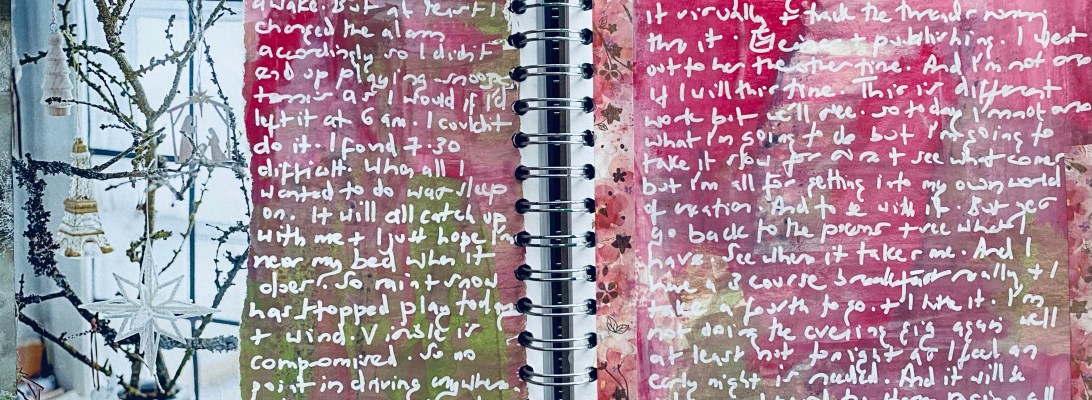 awake. But at least I
changed the alarm
accordingly so I didn't
end up playing snooze
tennis as I would if I'd
left it at 6 am. I couldn't
do it. I fond 7.30
difficult. When all I
wanted to do was sleep
on. It will all catch up
with me + I just hope I'm
near my bed when it
does. So rain + snow
has stopped play today
+ wind. Visible is
compromised. So no
point in driving anywhere.
it visually + track the threads running
thru it. + publishing. I went
out to her the other time. And I'm not sure
if I will this time. This is different
work but we'll see. So today I'm not sure
what I'm going to do but I'm going to
take it slow for sure + see what comes
but I'm all for getting into my own world
of creation. And to be with it. But yes
go back to the poems + see what I
have. See where it takes me. And I
have a 3 course breakfast really + I
take a fourth to go + I like it. I'm
not doing the evening gig again well
at least not tonight as I feel an
early night is needed. And it will be